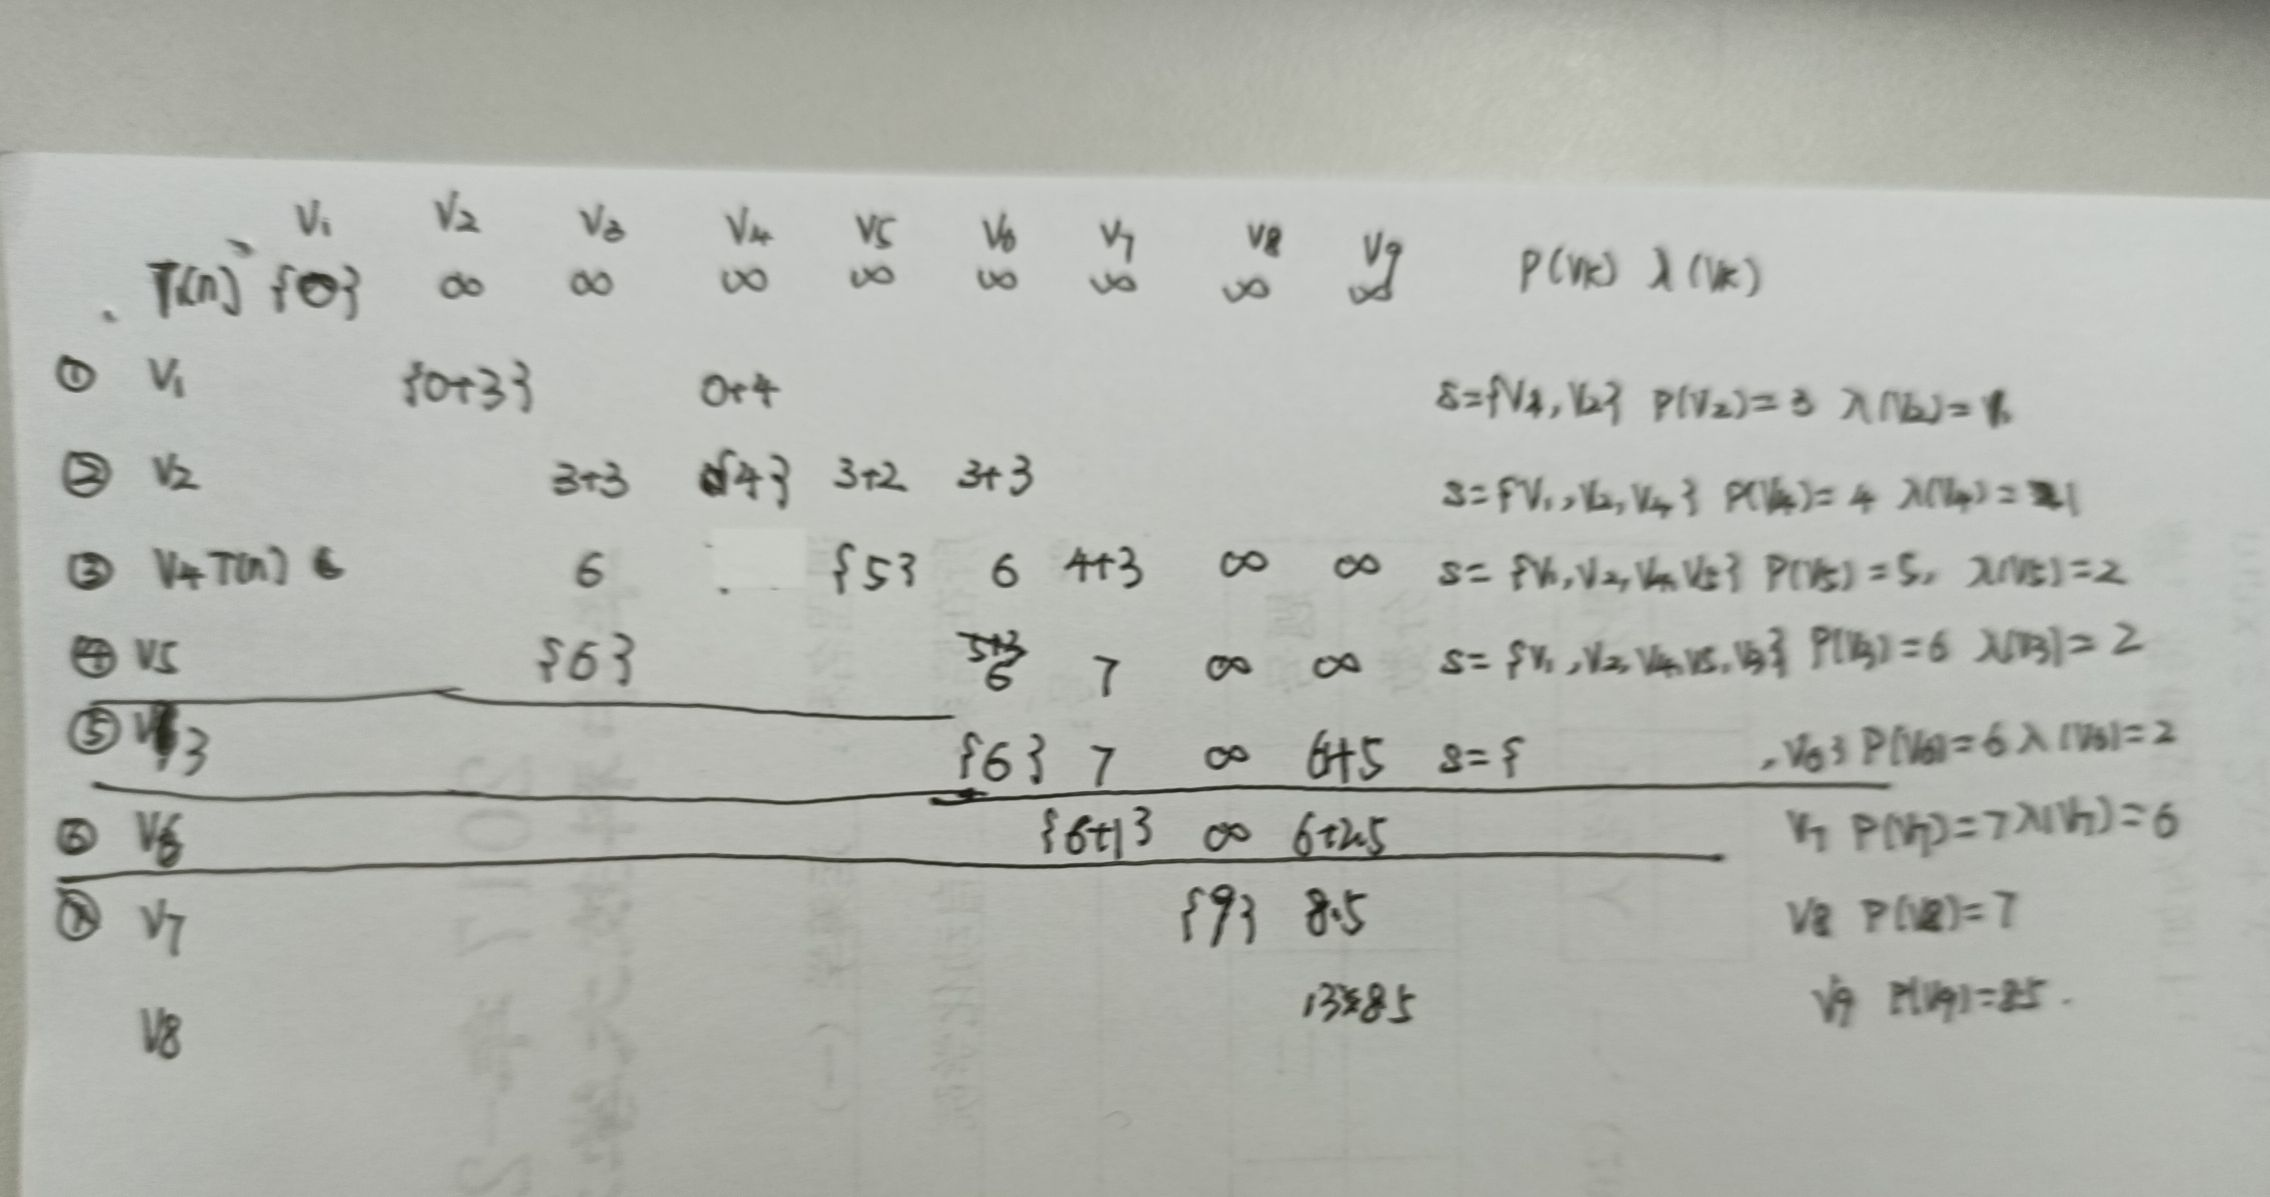 V1 V2 V3 V4 V5 V6 V7 V8 V9
T(n) {0} ∞ ∞ ∞ ∞ ∞ ∞ ∞ ∞ P(Vk) λ(Vk)
① V1 {0+3} 0+4 S={V1,V2} P(V2)=3 λ(V2)=1
② V2 3+3 {4} 3+2 3+3 S={V1,V2,V4} P(V4)=4 λ(V4)=1
③ V4 T(n) 6 {5} 6 4+3 ∞ ∞ S={V1,V2,V4,V5} P(V5)=5, λ(V5)=2
④ V5 {6} 5+3 6 7 ∞ ∞ S={V1,V2,V4,V5,V3} P(V3)=6 λ(V3)=2
⑤ V3 {6} 7 ∞ 6+5 S={ ,V6} P(V6)=6 λ(V6)=2
⑥ V6 {6+1} ∞ 6+2.5 V7 P(V7)=7 λ(V7)=6
⑦ V7 {9} 8.5 V8 P(V8)=7
V8 13 8.5 V9 P(V9)=8.5.